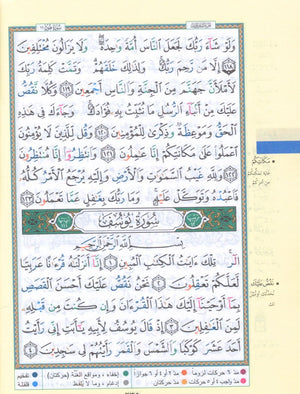 وَلَوْ شَآءَ رَبُّكَ لَجَعَلَ ٱلنَّاسَ أُمَّةً وَٰحِدَةً ۖ وَلَا يَزَالُونَ مُخْتَلِفِينَ
١١٨ إِلَّا مَن رَّحِمَ رَبُّكَ ۚ وَلِذَٰلِكَ خَلَقَهُمْ ۗ وَتَمَّتْ كَلِمَةُ رَبِّكَ
لَأَمْلَأَنَّ جَهَنَّمَ مِنَ ٱلْجِنَّةِ وَٱلنَّاسِ أَجْمَعِينَ ١١٩ وَكُلًّا نَّقُصُّ
عَلَيْكَ مِنْ أَنۢبَآءِ ٱلرُّسُلِ مَا نُثَبِّتُ بِهِۦ فُؤَادَكَ ۚ وَجَآءَكَ فِى هَٰذِهِ
ٱلْحَقُّ وَمَوْعِظَةٌ وَذِكْرَىٰ لِلْمُؤْمِنِينَ ١٢٠ وَقُل لِّلَّذِينَ لَا يُؤْمِنُونَ
ٱعْمَلُوا۟ عَلَىٰ مَكَانَتِكُمْ إِنَّا عَٰمِلُونَ ١٢١ وَٱنتَظِرُوٓا۟ إِنَّا مُنتَظِرُونَ
١٢٢ وَلِلَّهِ غَيْبُ ٱلسَّمَٰوَٰتِ وَٱلْأَرْضِ وَإِلَيْهِ يُرْجَعُ ٱلْأَمْرُ كُلُّهُۥ
فَٱعْبُدْهُ وَتَوَكَّلْ عَلَيْهِ ۚ وَمَا رَبُّكَ بِغَٰفِلٍ عَمَّا تَعْمَلُونَ ١٢٣
سُورَةُ يُوسُفَ
بِسْمِ ٱللَّهِ ٱلرَّحْمَٰنِ ٱلرَّحِيمِ
الٓر ۚ تِلْكَ ءَايَٰتُ ٱلْكِتَٰبِ ٱلْمُبِينِ ١ إِنَّآ أَنزَلْنَٰهُ قُرْءَٰنًا عَرَبِيًّا
لَّعَلَّكُمْ تَعْقِلُونَ ٢ نَحْنُ نَقُصُّ عَلَيْكَ أَحْسَنَ ٱلْقَصَصِ
بِمَآ أَوْحَيْنَآ إِلَيْكَ هَٰذَا ٱلْقُرْءَانَ وَإِن كُنتَ مِن قَبْلِهِۦ
لَمِنَ ٱلْغَٰفِلِينَ ٣ إِذْ قَالَ يُوسُفُ لِأَبِيهِ يَٰٓأَبَتِ إِنِّى رَأَيْتُ
أَحَدَ عَشَرَ كَوْكَبًا وَٱلشَّمْسَ وَٱلْقَمَرَ رَأَيْتُهُمْ لِى سَٰجِدِينَ ٤
مَكَانَتِكُمْ
نَقُصُّ عَلَيْكَ
مدّ ٦ حركات لزوماً
مدّ ٢ أو ٤ أو ٦ جوازاً
إخفاء، ومواقع الغنّة (حركتان)
تفخيم
مدّ واجب ٤ أو ٥ حركات
مدّ حركتان
إدغام، وما لا يُلفظ
قلقلة